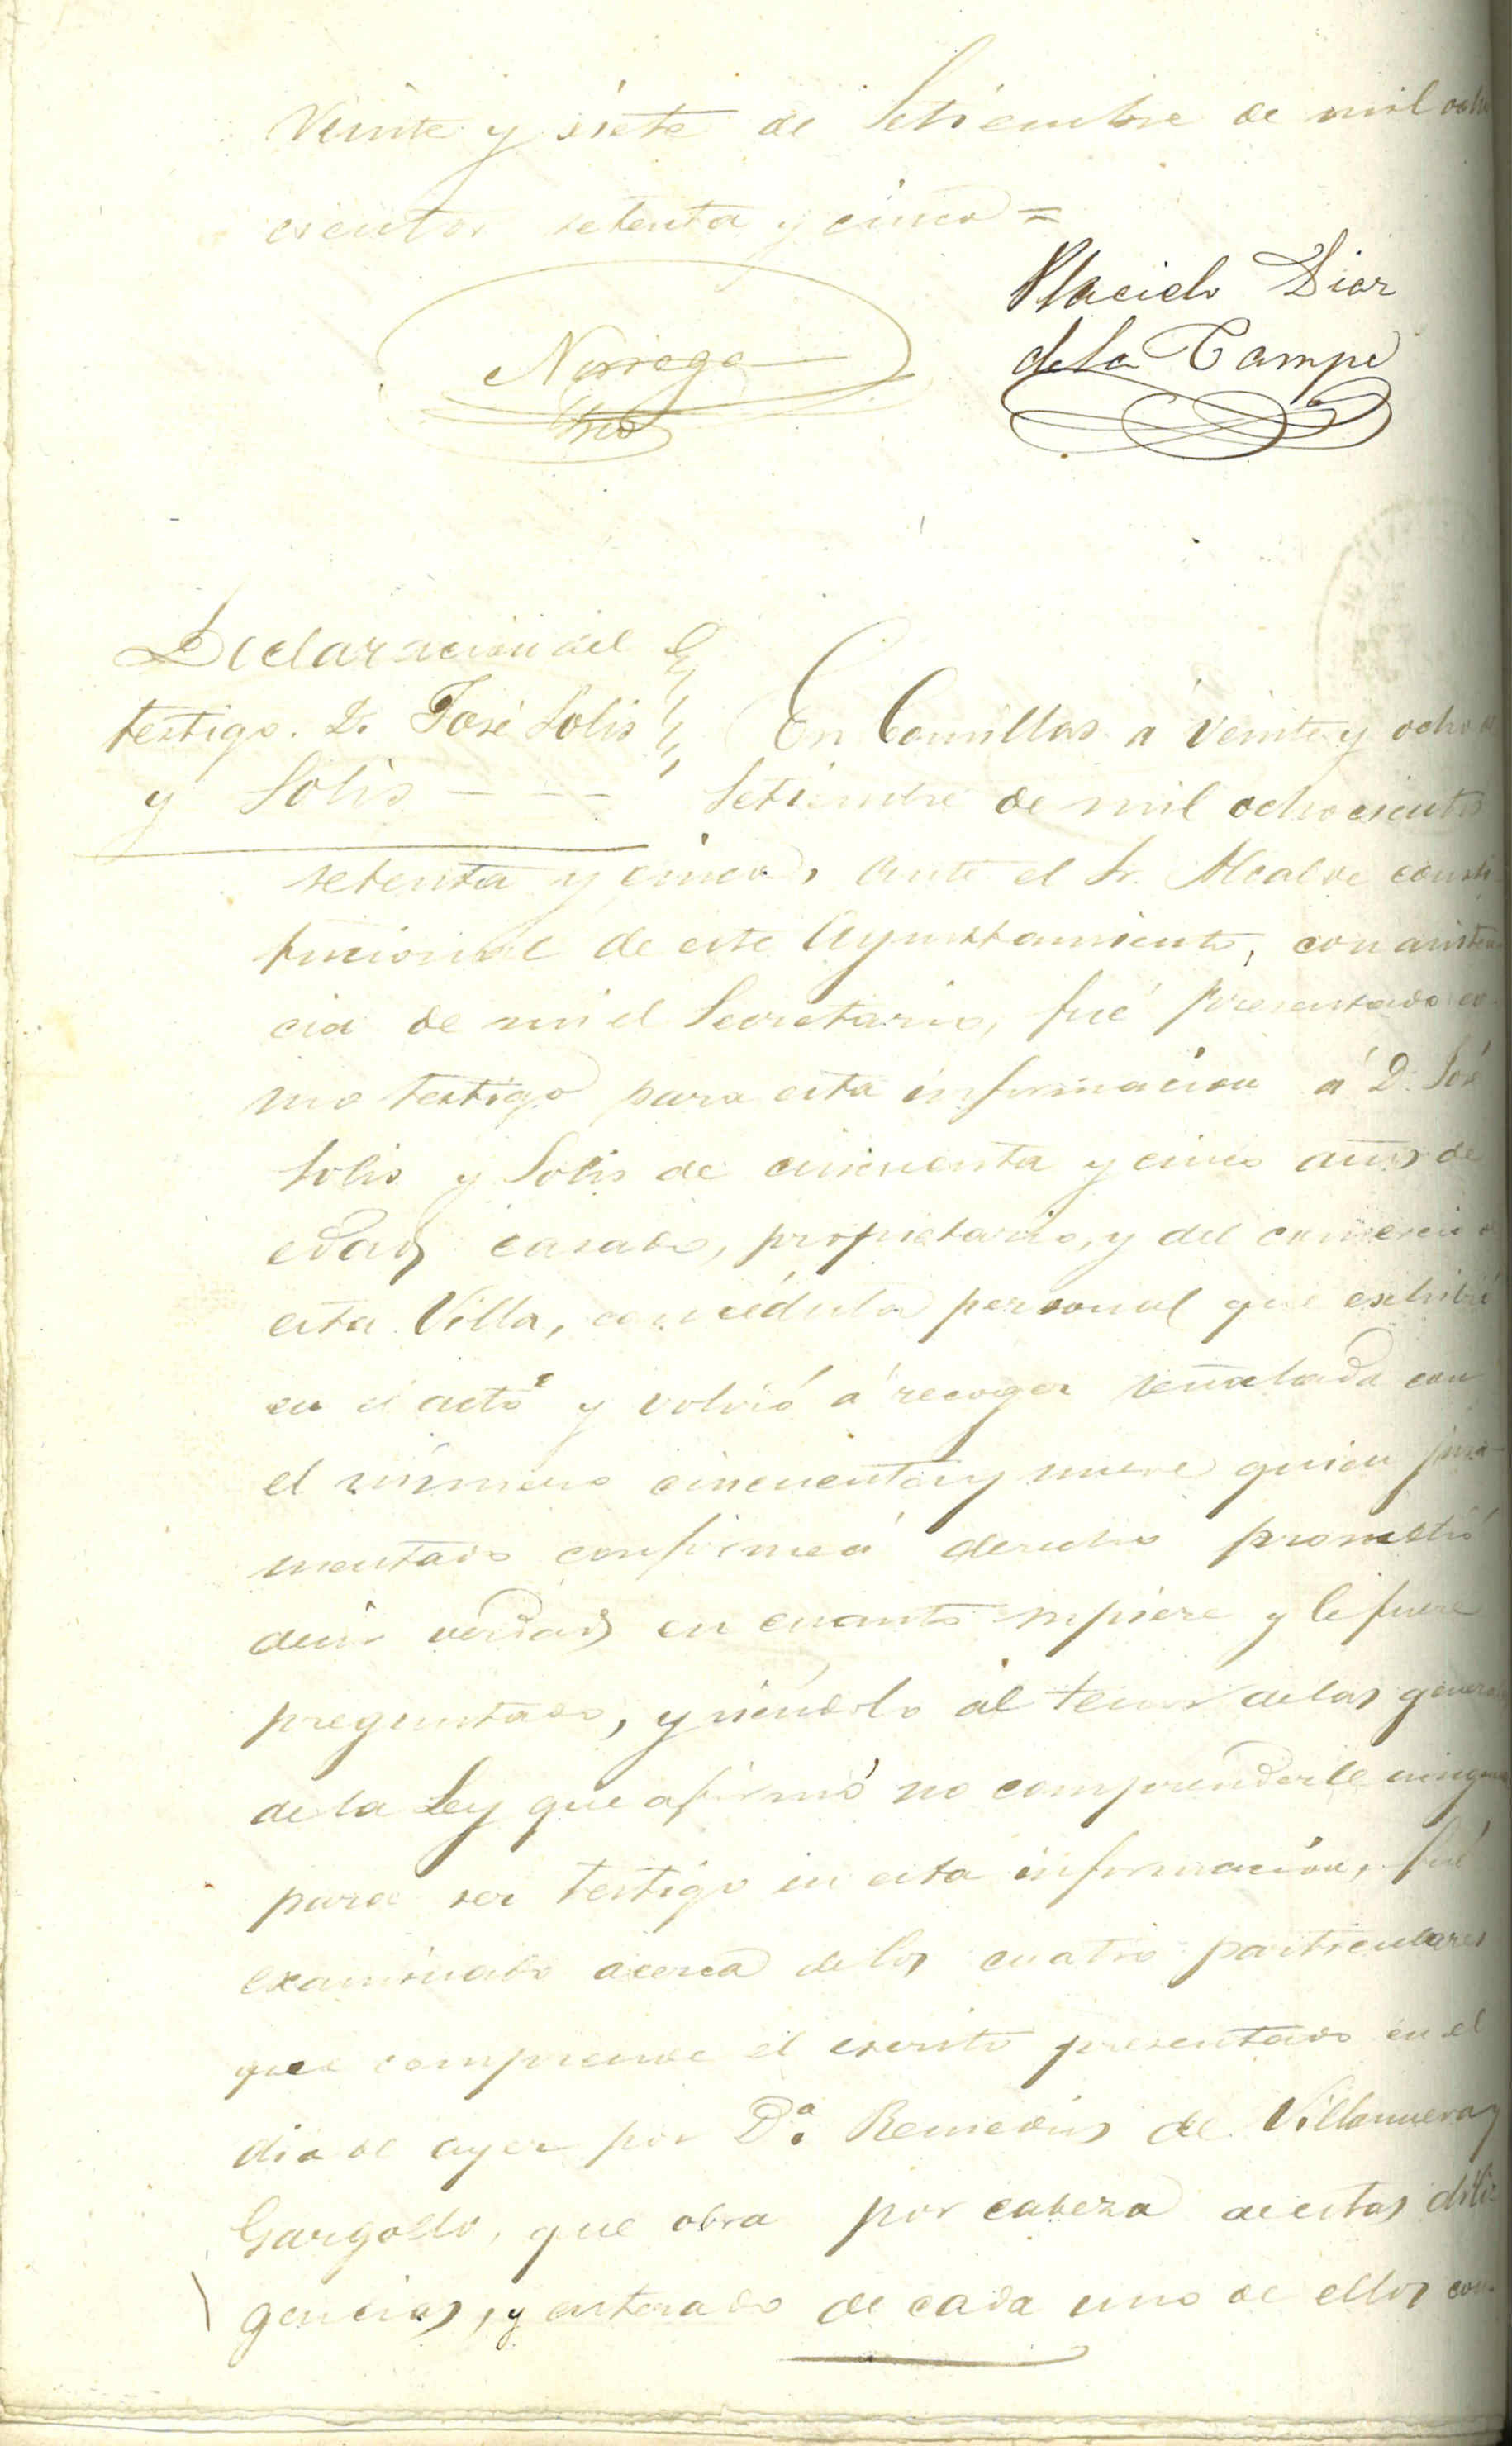 Veinte y siete de Setiembre de mil ocho
cientos setenta y cinco =
Placido Diaz
de la Campa
Noriega
Srio
Declaracion del
testigo. D. José Solis
y Solis - - -
En Comillas á veinte y ocho de
Setiembre de mil ochocientos
setenta y cinco, ante el Sr. Alcalde consti
tucional de este Ayuntamiento, con asisten
cia de mi el Secretario, fué presentado co-
mo testigo para esta informacion á D. José
Solis y Solis de cincuenta y cinco años de
edad casado, propietario, y del comercio de
esta Villa, con cédula personal que exhibió
en el acto y volvió á recoger señalada con
el número cincuenta y nueve quien jura-
mentado conforme á derecho prometió
decir verdad en cuanto supiere y le fuere
preguntado, y siéndolo al tenor de las generales
de la Ley que afirmó no comprenderle ninguna
para ser testigo en esta informacion, fué
examinado acerca de los cuatro particulares
que comprende el escrito presentado en el
dia de ayer por D.ª Remedios de Villanueva y
Gargollo, que obra por cabeza de estas dili-
gencias, y enterado de cada uno de ellos con-